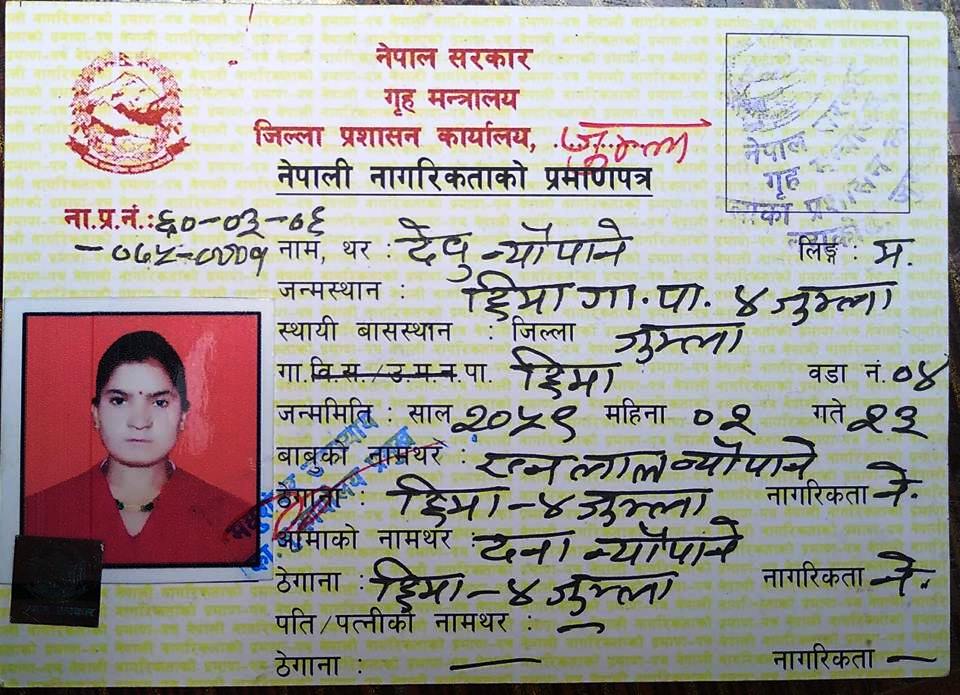 नेपाल सरकार
गृह मन्त्रालय
जिल्ला प्रशासन कार्यालय, जुम्ला
नेपाली नागरिकताको प्रमाणपत्र
नेपाल सरकार
गृह मन्त्रालय
प्रशासन
ना.प्र.नं.: ६०-०३-०६
-०७५-००००१
नाम, थर : देवु न्यौपाने लिङ्ग : म.
जन्मस्थान : हिमा गा.पा. ४ जुम्ला
स्थायी बासस्थान : जिल्ला जुम्ला
गा.वि.स./उ.म.न.पा. हिमा वडा नं. ०४
जन्ममिति : साल २०५९ महिना ०२ गते २३
बाबुको नामथर : लाल न्यौपाने
ठेगाना : हिमा - ४ जुम्ला नागरिकता ने.
आमाको नामथर : दना न्यौपाने
ठेगाना : हिमा - ४ जुम्ला नागरिकता ने.
पति/पत्नीको नामथर : —
ठेगाना : — नागरिकता —